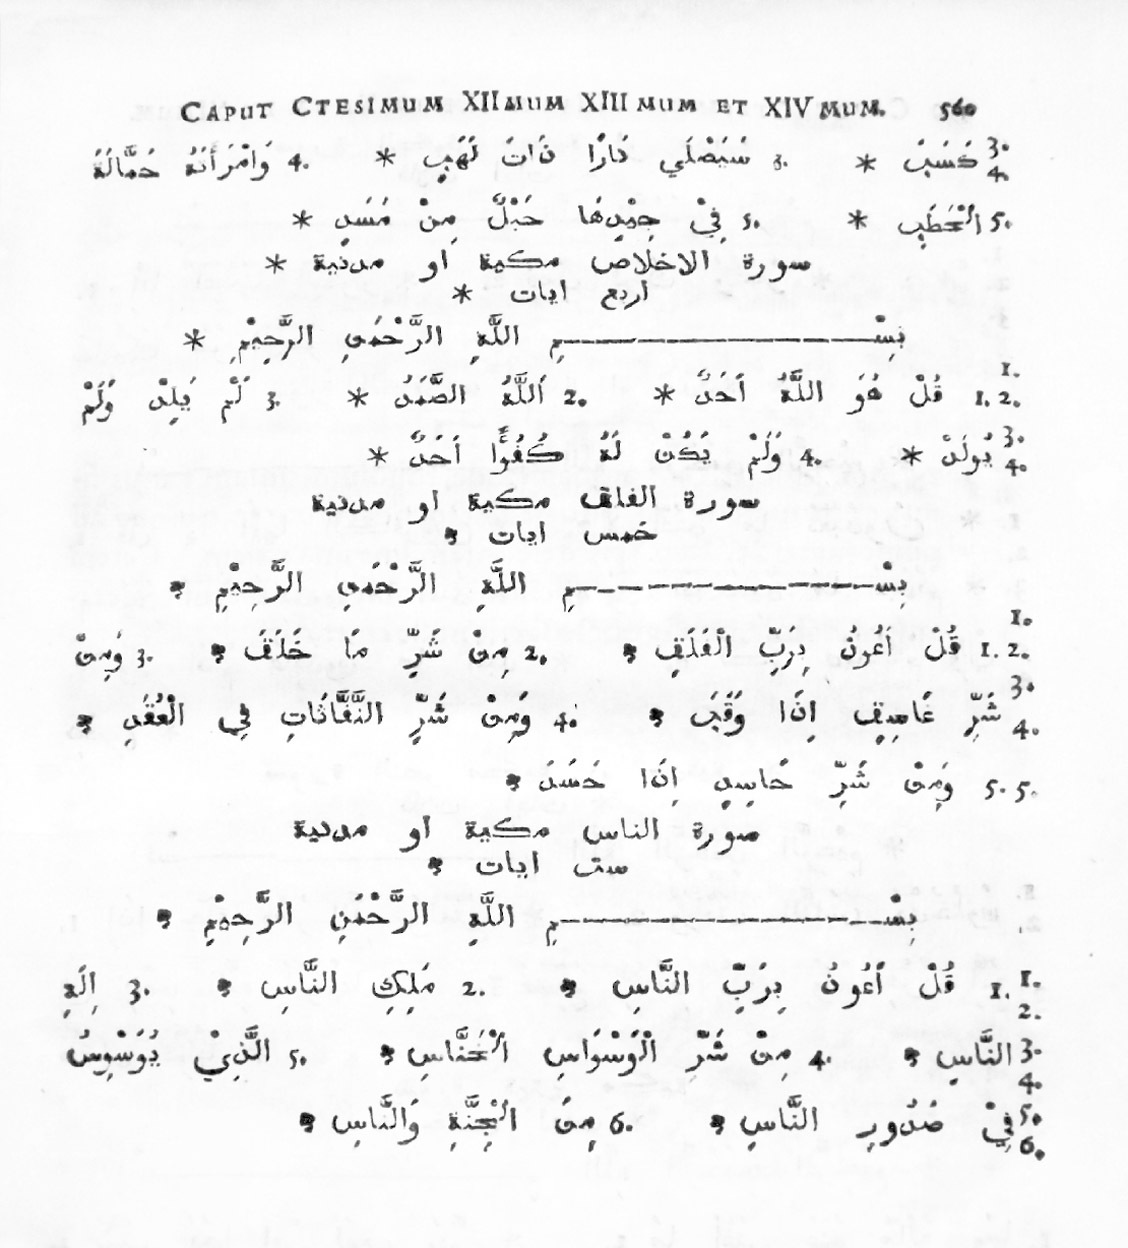 CAPUT CTESIMUM XIIMUM XIIIMUM ET XIVMUM. 560
3. 4. كَسَبَ * 3. سَيَصْلَي نَارًا ذَاتَ لَهَبٍ * 4. وَامْرَأَتَهُ حَمَّالَةَ
5. اَلْحَطَبِ * 5. فِيْ جِيْدِهَا حَبْلٌ مِنْ مَسَدٍ *
سورة الاخلاص مكية او مدنية *
اربع ايات *
بِسْـــــــمِ اللَّهِ الرَّحْمَنِ الرَّحِيْمِ *
1. 1. 2. قُلْ هُوَ اللَّهُ اَحَدٌ * 2. اَللَّهُ الصَّمَدُ * 3. لَمْ يَلِدْ وَلَمْ
3. 4. يُولَدْ * 4. وَلَمْ يَكُنْ لَهُ كُفُوًا اَحَدٌ *
سورة الفلق مكية او مدنية
خمس ايات *
بِسْـــــــمِ اللَّهِ الرَّحْمَنِ الرَّحِيْمِ *
1. 1. 2. قُلْ اَعُوذُ بِرَبِّ الْفَلَقِ * 2. مِنْ شَرِّ مَا خَلَقَ * 3. وَمِنْ
3. 4. شَرِّ غَاسِقٍ اِذَا وَقَبَ * 4. وَمِنْ شَرِّ النَّفَّاثَاتِ فِي الْعُقَدِ *
5. 5. وَمِنْ شَرِّ حَاسِدٍ اِذَا حَسَدَ *
سورة الناس مكية او مدنية
ست ايات *
بِسْـــــــمِ اللَّهِ الرَّحْمَنِ الرَّحِيْمِ *
1. 2. 1. قُلْ اَعُوذُ بِرَبِّ النَّاسِ * 2. مَلِكِ النَّاسِ * 3. اِلَهِ
3. 4. النَّاسِ * 4. مِنْ شَرِّ الْوَسْوَاسِ اَلْخَنَّاسِ * 5. الَّذِيْ يُوَسْوِسُ
5. 6. فِيْ صُدُورِ النَّاسِ * 6. مِنَ اَلْجِنَّةِ وَالنَّاسِ *